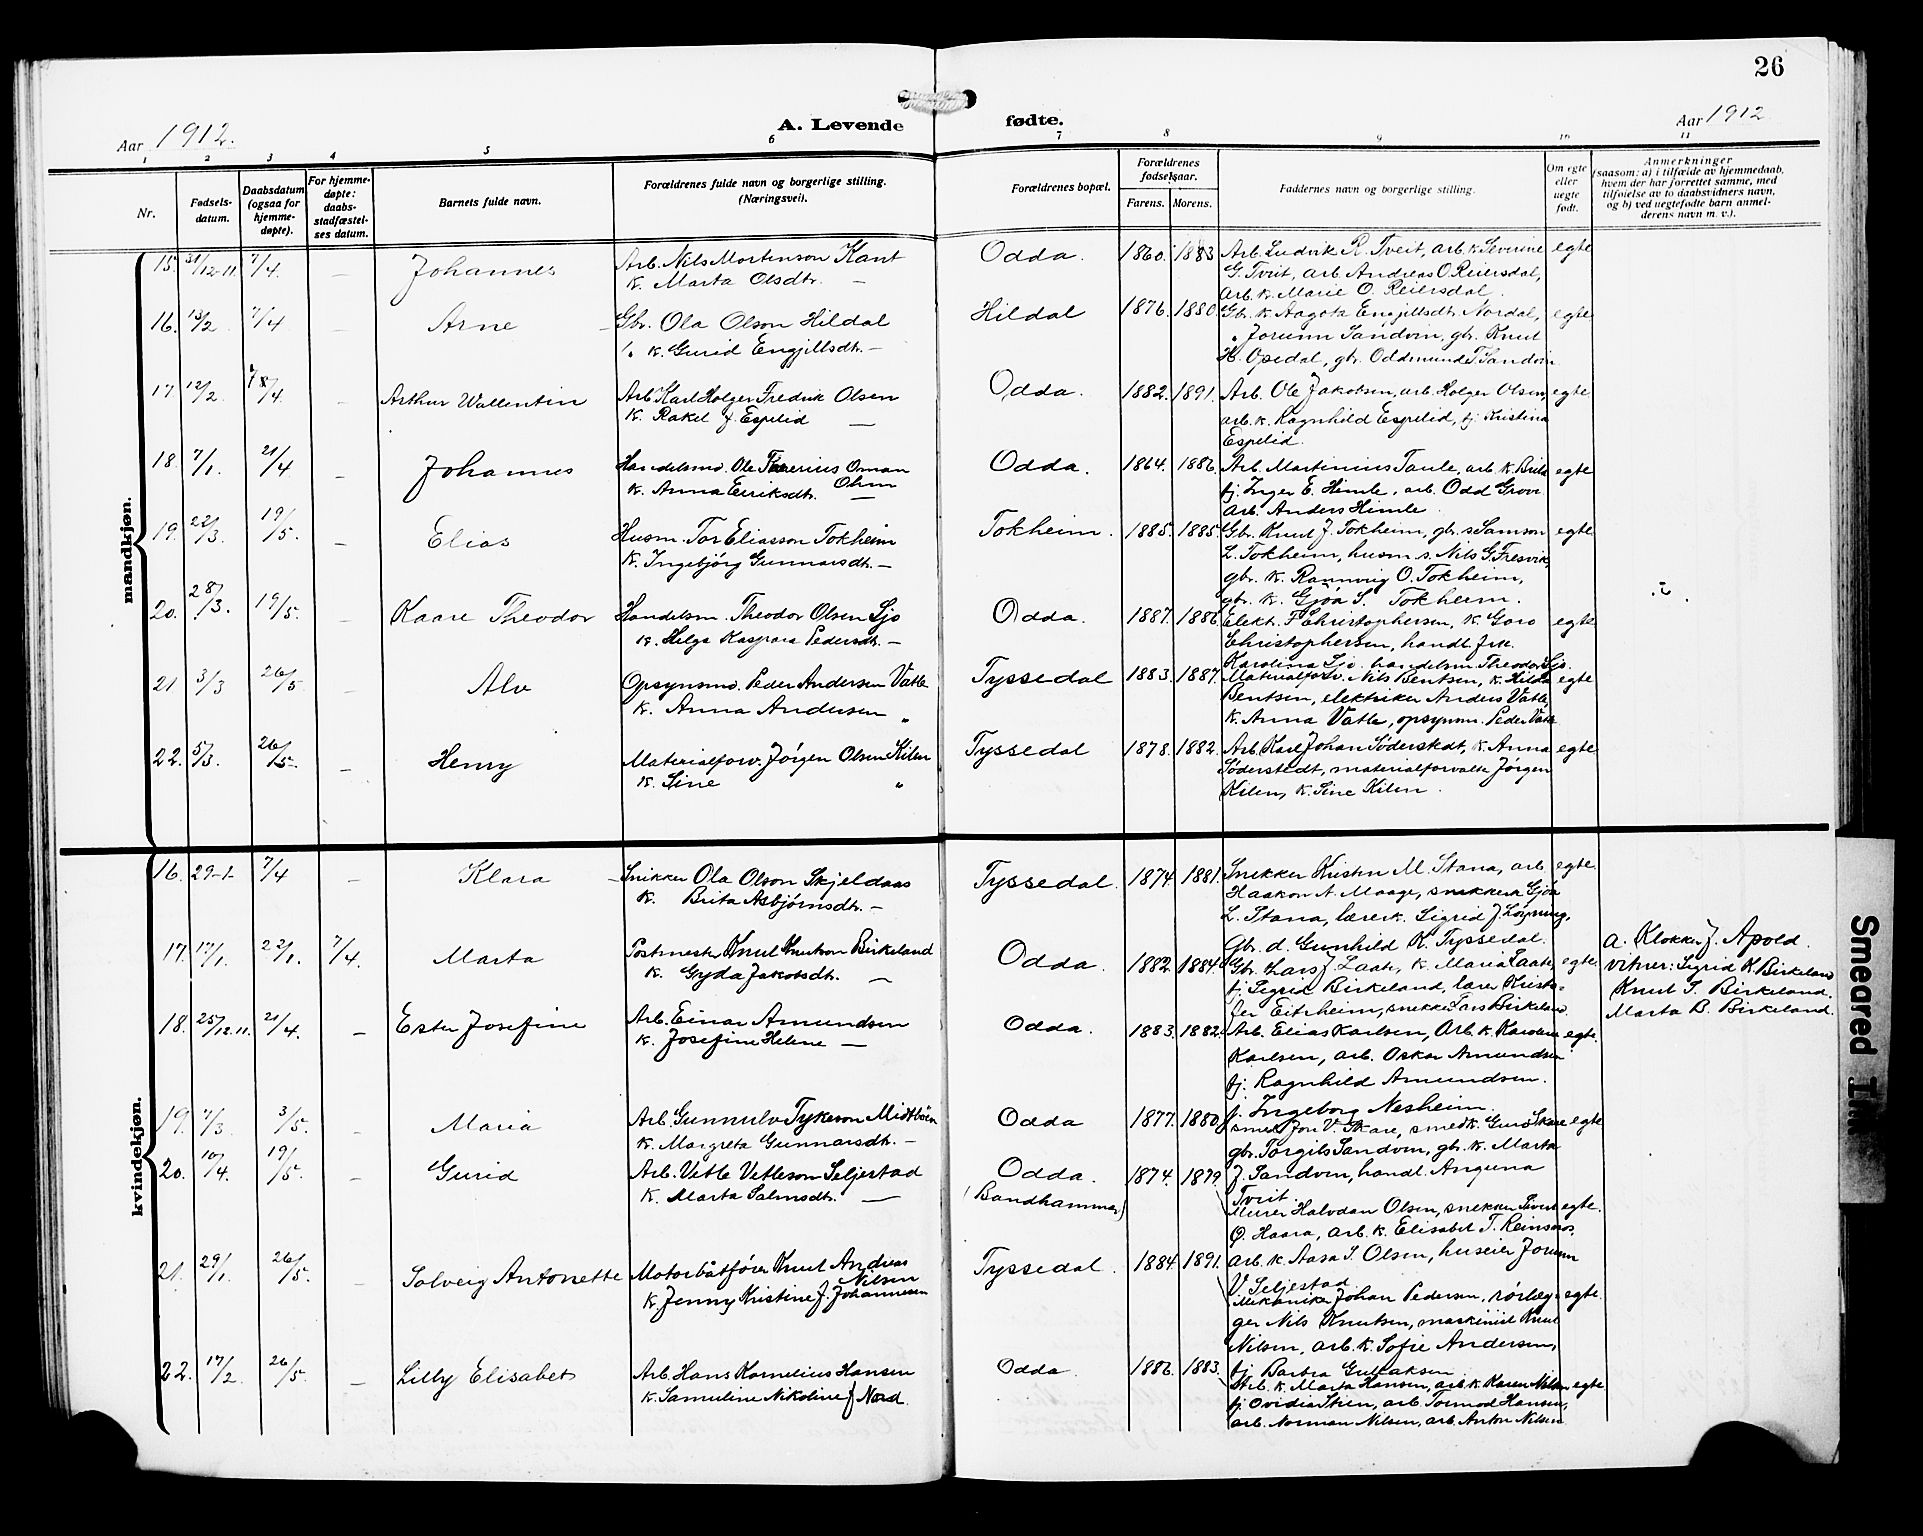 26
Aar 1912.
A. Levende fødte.
Aar 1912
1 2 3 4 5 6 7 8 9 10 11
Nr.
Fødsels-
datum.
Daabsdatum
(ogsaa for
hjemme-
døpte).
For hjemme-
døpte:
daabs-
stadfæstel-
ses datum.
Barnets fulde navn.
Forældrenes fulde navn og borgerlige stilling.
(Næringsvei).
Forældrenes bopæl.
Forældrenes
fødselsaar.
Farens. Morens.
Faddernes navn og borgerlige stilling.
Om egte
eller
uegte
født.
Anmerkninger
(saasom: a) i tilfælde av hjemmedaab,
hvem der har forrettet samme, med
tilføielse av to daabsvidners navn,
og b) ved uegtefødte barn anmel-
derens navn m. v.).
mandkjøn.
15. 31/12-11. 7/4. — Johannes
Arb. Nils Mortenson Kant
k. Marta Olsdtr. —
Odda. 1860. 1883
Arb. Ludvik R. Tveit, arb. k. Severine
G. Tveit, arb. Andreas O. Reiersdal,
arb. k. Marie O. Reiersdal.
egte
16. 13/2 7/4 — Arne
Gbr. Ola Olson Hildal
" k. Gurid Engjillsdtr. —
Hildal 1876. 1880.
Gbr. k. Aagota Engjillsdtr. Nordal,
" Jorunn Sandvin, gbr. Knut
H. Opedal, gbr. Oddmund T. Sandvin
egte
17. 12/2 8/4. — Arthur Wallentin
Arb. Karl Holger Fredrik Olsen
k. Rakel f. Espelid —
Odda. 1882. 1891.
Arb. Ole Jakobsen, arb. Holger Olsen,
arb. k. Ragnhild Espelid, fj. Kristina
Espelid.
egte
18. 7/1. 21/4 — Johannes
Handelsm. Ole Oman
Olsen
k. Anna Eiriksdtr. —
Odda. 1864. 1886.
Arb. Martinius Taule, arb. k. Brita
fj. Inger E. Himle, arb. Odd Grove
arb. Anders Himle
egte
19. 22/3. 19/5. — Elias
Husm. Tor Eliasson Tokheim
k. Ingebjörg Gunnarsdt. —
Tokheim. 1885. 1885.
Gbr. Knut J. Tokheim, gbr. s. Samson
L. Tokheim, husm. s. Nils G. Fresvik,
gbr. k. Rannveig O. Tokheim,
gbr. k. Gjøa S. Tokheim.
egte
20. 28/3. 19/5. — Kaare Theodor
Handelsm. Theodor Olsen Sjo
k. Helga Kaspara Pedersdt. —
Odda. 1887. 1886
Elekt. F. Christophersen, k. Goro
Christophersen, handl. frk.
Karolina Sjo. handelsm. Theodor Sjo.
egte
21 3/3 26/5 — Alv
Opsynsm. Peder Andersen Vatle
k. Anna Andersen "
Tyssedal 1883. 1887.
Materialforv. Nils Bentsen, k. Hilda
Bentsen, elektriker Anders Vatle,
k. Anna Vatle, opsynsm. Peder Vatle
egte
22. 5/3. 26/5. — Henry
Materialforv. Jørgen Olsen Kilen
k. Sine "
Tyssedal 1878. 1882.
Arb. Karl Johan Söderstedt, k. Anna
Söderstedt, materialforvalte Jørgen
Kilen, k. Sine Kilen.
egte
kvindekjøn.
16. 29-1- 7/4 — Klara
Snikker Ola Olson Skjeldaas
k. Brita Asbjørnsdtr. —
Tyssedal. 1874. 1881.
Snekker Kristen M. Stana, arb.
Haakon A. Maage, snekkerk. Gjøa
L. Stana, lærerk. Sigrid J. Løyning.
Gbr. d. Gunhild K. Tyssedal.
egte.
17. 17/1. 22/1. 7/4. Marta
Postmester Knut Knutson Birkeland
k. Gyda Jakobsdt. —
Odda. 1882. 1884.
Gbr. Lars J. Laate, k. Maria Laate,
fj. Sigrid Birkeland, lærer Kristo-
fer Eitrheim, snekker Lars Birkeland.
egte.
a. Klokker J. Apold.
vitner: Sigrid K. Birkeland
Knut S. Birkeland.
Marta B. Birkeland.
18. 25/12.11. 21/4. — Ester Josefine
Arb. Einar Amundsen
k. Josefine Helene —
Odda. 1883. 1882.
Arb. Elias Karlsen, Arb. k. Karoline
Karlsen, arb. Oskar Amundsen
fj. Ragnhild Amundsen.
egte.
19. 7/3. 3/5. — Maria
Arb. Gunnulv Tykeson Midtböen
k. Margreta Gunnarsdt. —
Odda 1877. 1880.
f. Ingeborg Nesheim
smed Jon V. Skare, smedk. Guro Skare
gbr. Torgils Sandven, gbr. k. Marta
J. Sandven, handl. Anguna
Tveit.
egte.
20. 10/4. 19/5. — Gurid
Arb. Vetle Vetleson Seljestad
k. Marta Salmsdt. —
Odda.
(Bandhammar)
1874. 1879.
Murer Halvdan Olsen, snekker Sivert
O. Haara, arb. k. Elisabet T. Reinsnos,
arb. k. Aasa S. Olsen, huseier Jorunn
V. Seljestad
egte.
21. 29/1. 26/5. — Solveig Antonette
Motorbåtfører Knut Andreas
Nilsen
k. Jenny Kristine f. Johannesen
Tyssedal. 1884. 1891.
Mekaniker Johan Pedersen, rörlæg-
ger Nils Knutsen, maskinist Knut
Nilsen, arb. k. Sofie Andersen,
fj. Barbra Gullaksen
egte.
22. 17/2. 26/5. — Lilly Elisabet
Arb. Hans Kornelius Hansen
k. Samuline Nikoline f. Nord.
Odda 1886. 1883.
Arb. k. Marta Hansen, arb. k. Karen Nilsen
fj. Ovidia Stien, arb. Tormod Hansen,
arb. Norman Nilsen, arb. Anton Nilsen
egte.
Smeared